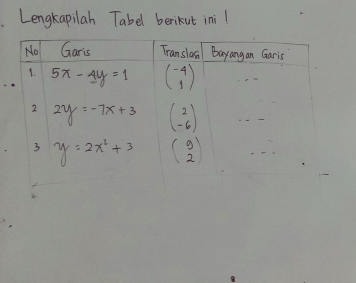 Lengkapilah Tabel berikut ini !
No Garis Translasi Bayangan Garis
1. 5x - 4y = 1 (-4 1) ---
2 2y = -7x + 3 (2 -6) ---
3 y = 2x² + 3 (9 2) ---